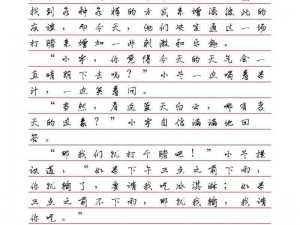 找到各种各样的方式来增添彼此的
友谊，而今天，他们决定通过一场
打赌来增加一些刺激和乐趣。
“小宇，你觉得今天的天气会一
直晴朗下去吗？”小斗一边喝着果
汁，一边笑着问。
“当然，看这蓝天白云，哪有变
天的迹象？”小宇自信满满地回
答。
“那我们就打个赌吧！”小斗提
议道，“如果下午三点之前下雨，
你就输了，要请我吃冰淇淋；如果
三点之前不下雨，我就输，我请
你吃。”